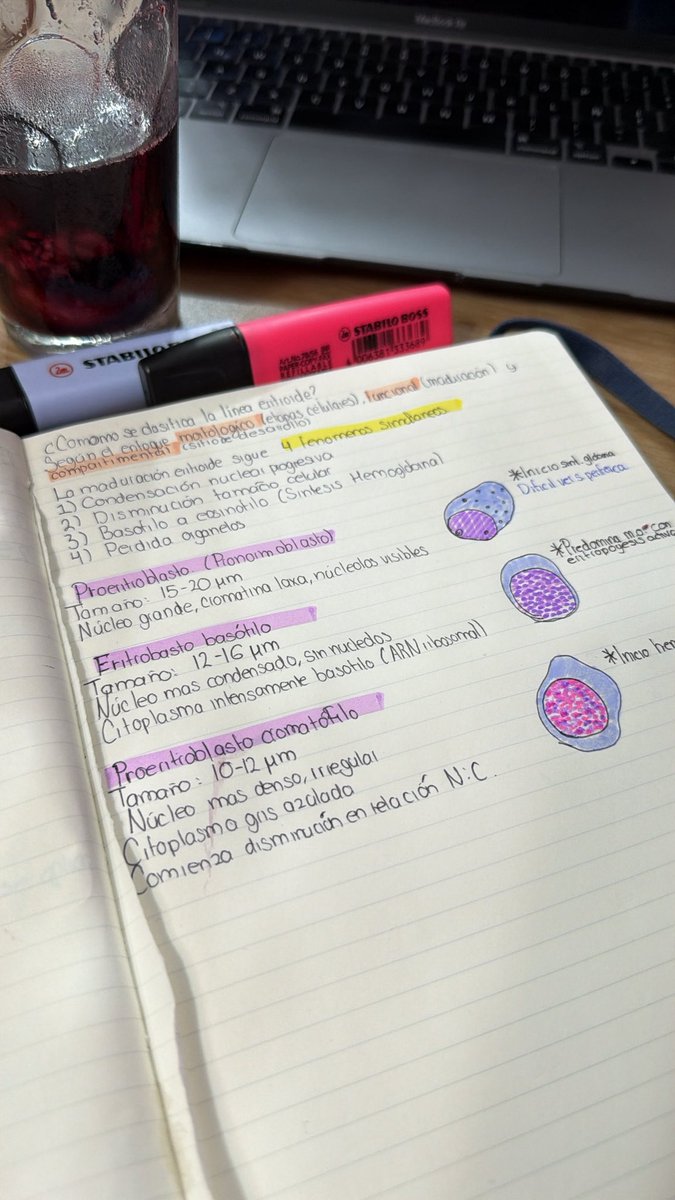 MacBook Air
STABILO
STABILO BOSS
REFILLABLE
4 006381 333689
¿Comomo se clasifica la línea eritroide?
Según el enfoque morfologico (etapas celulares), funcional (maduración) y
compartimental (sitio de desarrollo)
La maduración eritroide sigue 4 fenomeros simultaneos
1) Condensación nuclear progesiva
2) Disminución tamaño celular
3) Basofilo a eosinofilo (Sintesis Hemoglobina)
4) Perdida organelos
Proeritroblasto (Pronormoblasto)
Tamaño: 15-20 μm
Núcleo grande, cromatina laxa, núcleolos visibles
*Inicio sint. globina
Dificil ver s. periferica
Eritrobasto basófilo
Tamaño: 12-16 μm
Núcleo mas condensado, sin nucleolos
Citoplasma intensamente basofilo (ARN ribosomal)
*Predomina m.o con
eritropoyesis activa
Proeritroblasto cromatófilo
Tamaño: 10-12 μm
Núcleo mas denso, irregular
Citoplasma gris azulada
Comienza disminución en relación N:C.
*Inicio hem